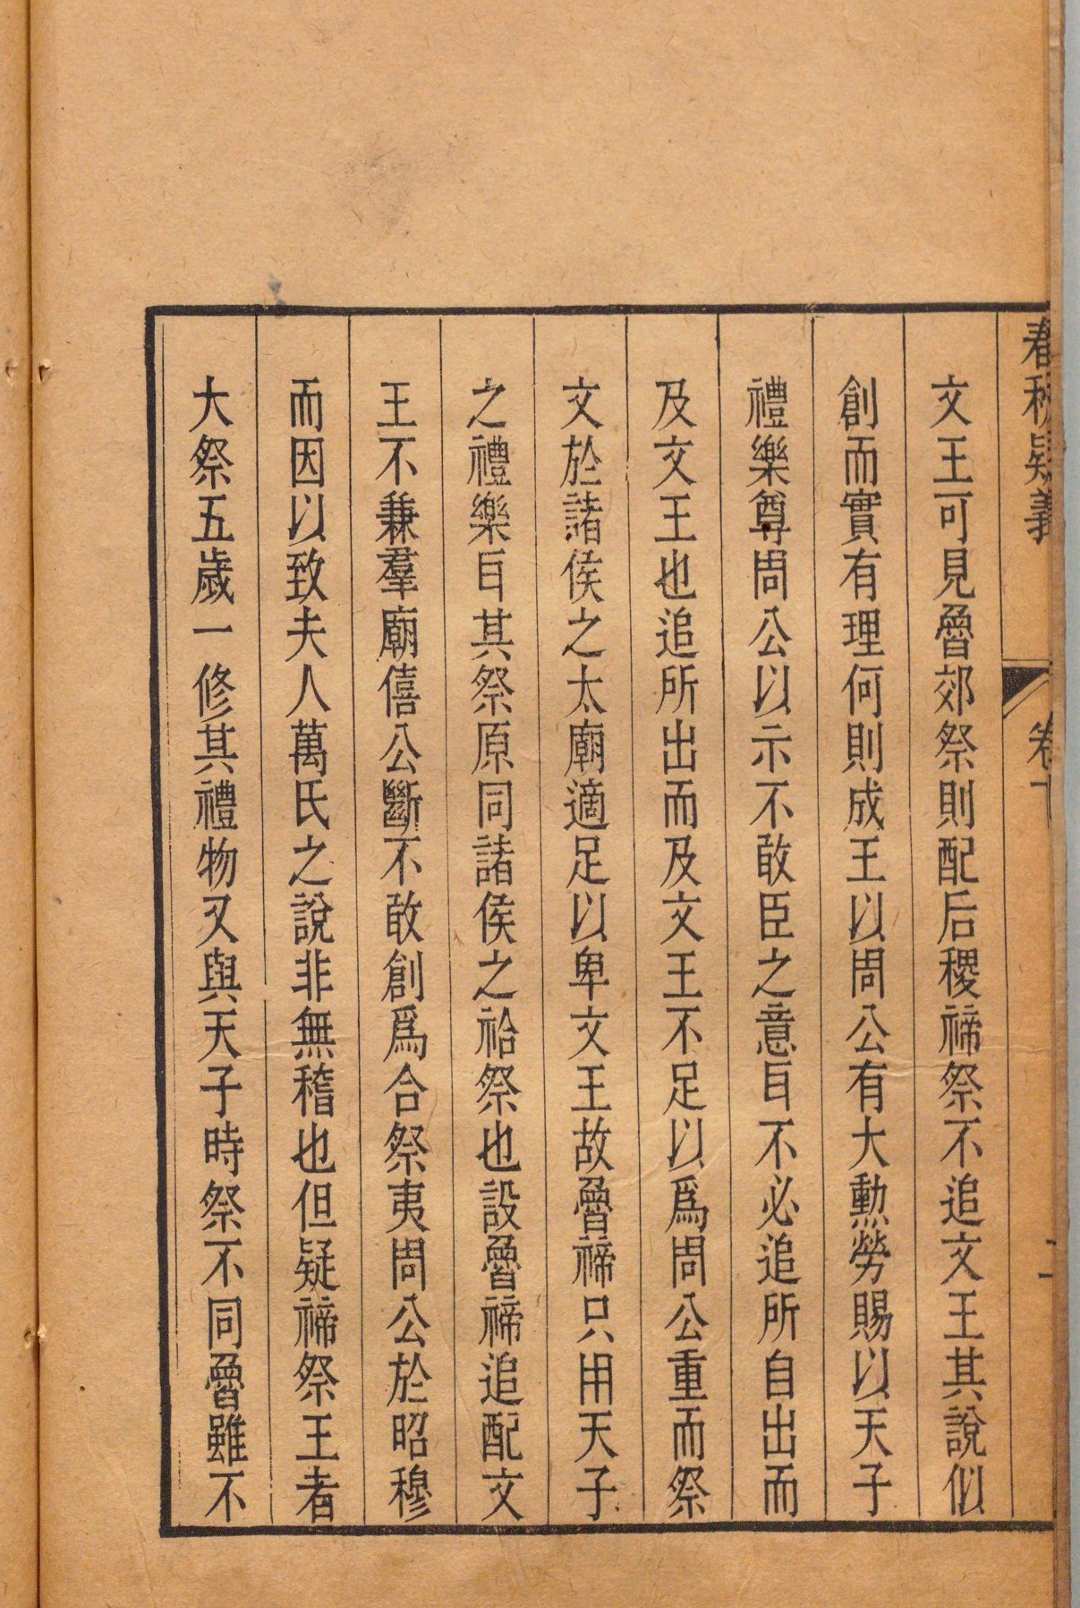 春秋疑義
卷十
文王可見魯郊祭則配后稷禘祭不追文王其說似
創而實有理何則成王以周公有大勲勞賜以天子
禮樂尊周公以示不敢臣之意㠯不必追所自出而
及文王也追所出而及文王不足以爲周公重而祭
文於諸侯之太廟適足以卑文王故魯禘只用天子
之禮樂㠯其祭原同諸侯之祫祭也設魯禘追配文
王不兼羣廟僖公斷不敢創爲合祭夷周公於昭穆
而因以致夫人萬氏之說非無稽也但疑禘祭王者
大祭五歲一修其禮物又與天子時祭不同魯雖不